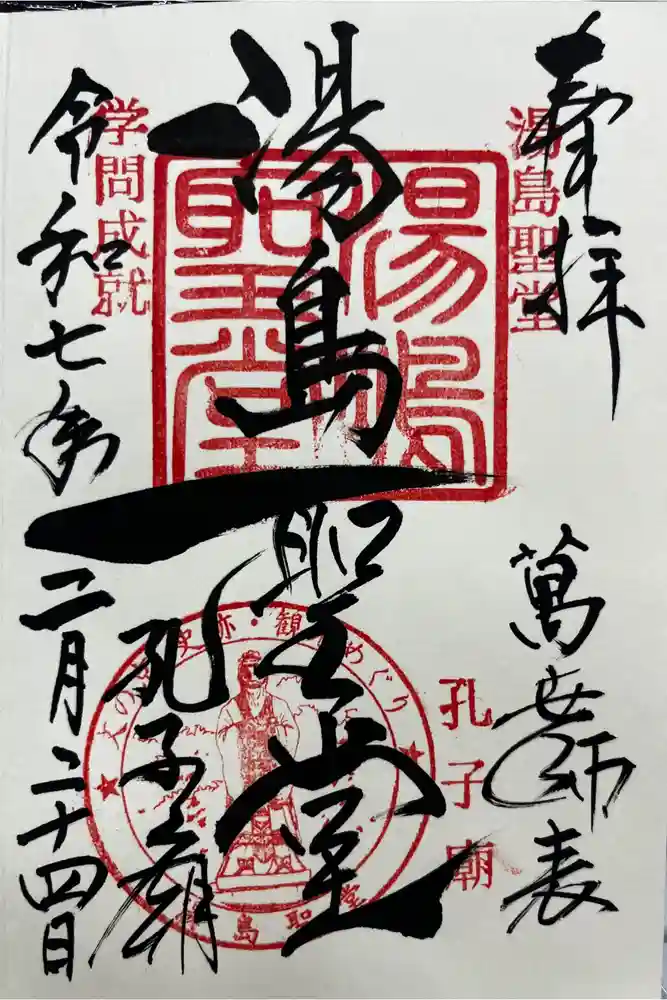 奉拝
湯島聖堂
萬世師表
孔子廟
湯島聖堂
湯島聖堂
孔子廟
学問成就
令和七年二月二十四日
史跡・観
めぐり
島聖堂